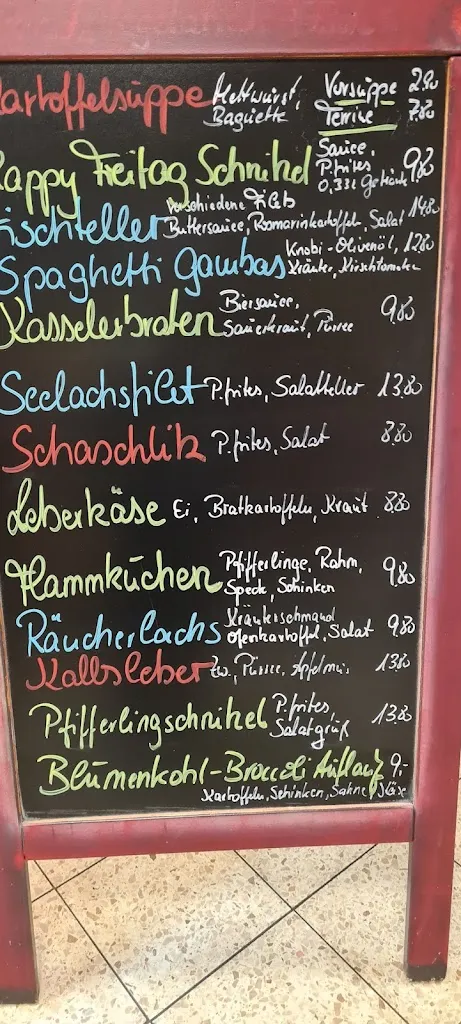 Kartoffelsuppe Mettwurst, Baguette Vorsuppe 2.80
Terrine 7.80
Happy Freitag Schnitzel Sauce, P.frites 0,33l Getränk 9,80
Fischteller verschiedene Filets Buttersauce, Rosmarinkartoffeln, Salat 14.80
Spaghetti Gambas Knobi-Olivenöl, Kräuter, Kirschtomaten 12.80
Kasselerbraten Biersauce, Sauerkraut, Püree 9.80
Seelachsfilet P.frites, Salatteller 13.80
Schaschlik P.frites, Salat 8.80
Leberkäse Ei, Bratkartoffeln, Kraut 8.80
Flammkuchen Pfifferlinge, Rahm, Speck, Schinken 9.80
Räucherlachs Kräuterschmand Ofenkartoffel, Salat 9.80
Kalbsleber Zw., Püree, Apfelmus 13.80
Pfifferlingschnitzel P.frites, Salatgruß 13.80
Blumenkohl-Broccoli Auflauf 9,-
Kartoffeln, Schinken, Sahne, Käse